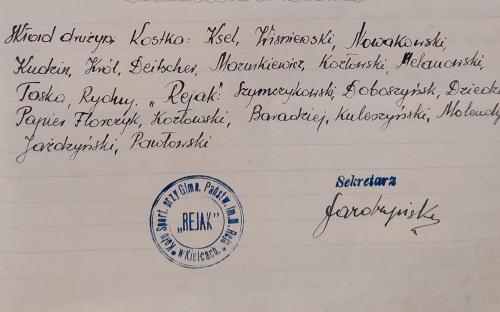 Skład drużyn Kostka: Ksel, Wiśniewski, Nowakowski,
Kudzin, Król, Deitscher, Mazurkiewicz, Kozłowski, Melanowski,
Taska, Rychu. „Rejak": Szymczykowski, Doboszyńsk, Dziedzi
Papier Florczyk, Kozłowski, Baradziej, Kuleszyński, Molendy
Jażdżyński, Pawłowski
Koło Sport. przy Gimn. Państw. im. M. Reja
„REJAK"
w Kielcach.
Sekretarz